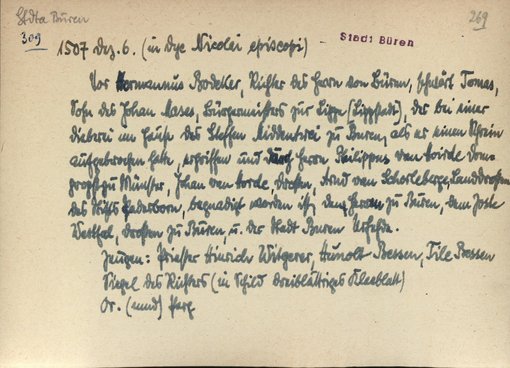 Stdta Büren
309
269
1507 Dez. 6. (in dye Nicolai episcopi)
Stadt Büren
Vor Hermannus Bodeker, Richter des Herrn von Büren, schwört Tomas,
Sohn des Johan Mases, Bürgermeisters zur Lippe (Lippstadt), der bei einer
dieberei im Hause des Steffen Middentwei zu Buren, als er einen Schrein
aufgebrochen hatte, ergriffen und durch Herrn Philippus van hörde Dom-
propst zu Münster, Johan van horde, drosten, Arnd van Schorleberge, Landdrosten
des Stifts Paderborn, begnadigt worden ist, dem Herrn zu Büren, dem Joste
Westfal, drosten zu Büren, u. der Stadt Buren Urfehde.
Zeugen: Priester Hinrich Witgerer, Hunolt Bessen, Tile Bessen
Siegel des Richters (in Schild dreiblättriges Kleeblatt)
Or. (mnd) Perg.